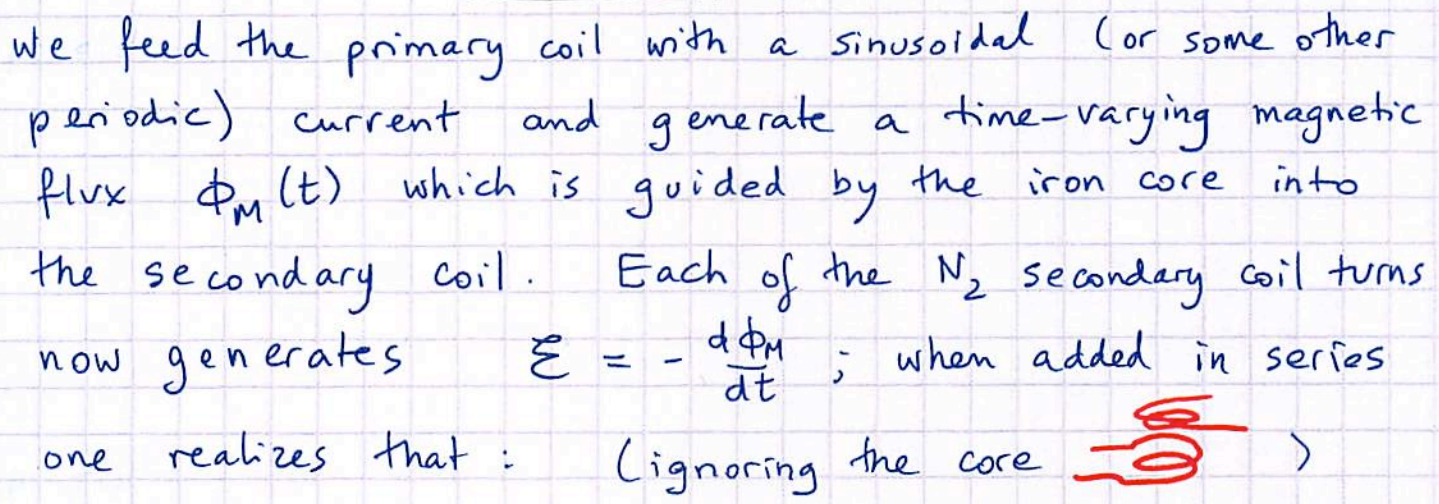 we feed the primary coil with a sinusoidal (or some other
periodic) current and generate a time-varying magnetic
flux ϕ_M(t) which is guided by the iron core into
the secondary coil. Each of the N₂ secondary coil turns
now generates Ɛ = - dϕ_M/dt ; when added in series
one realizes that : (ignoring the core )